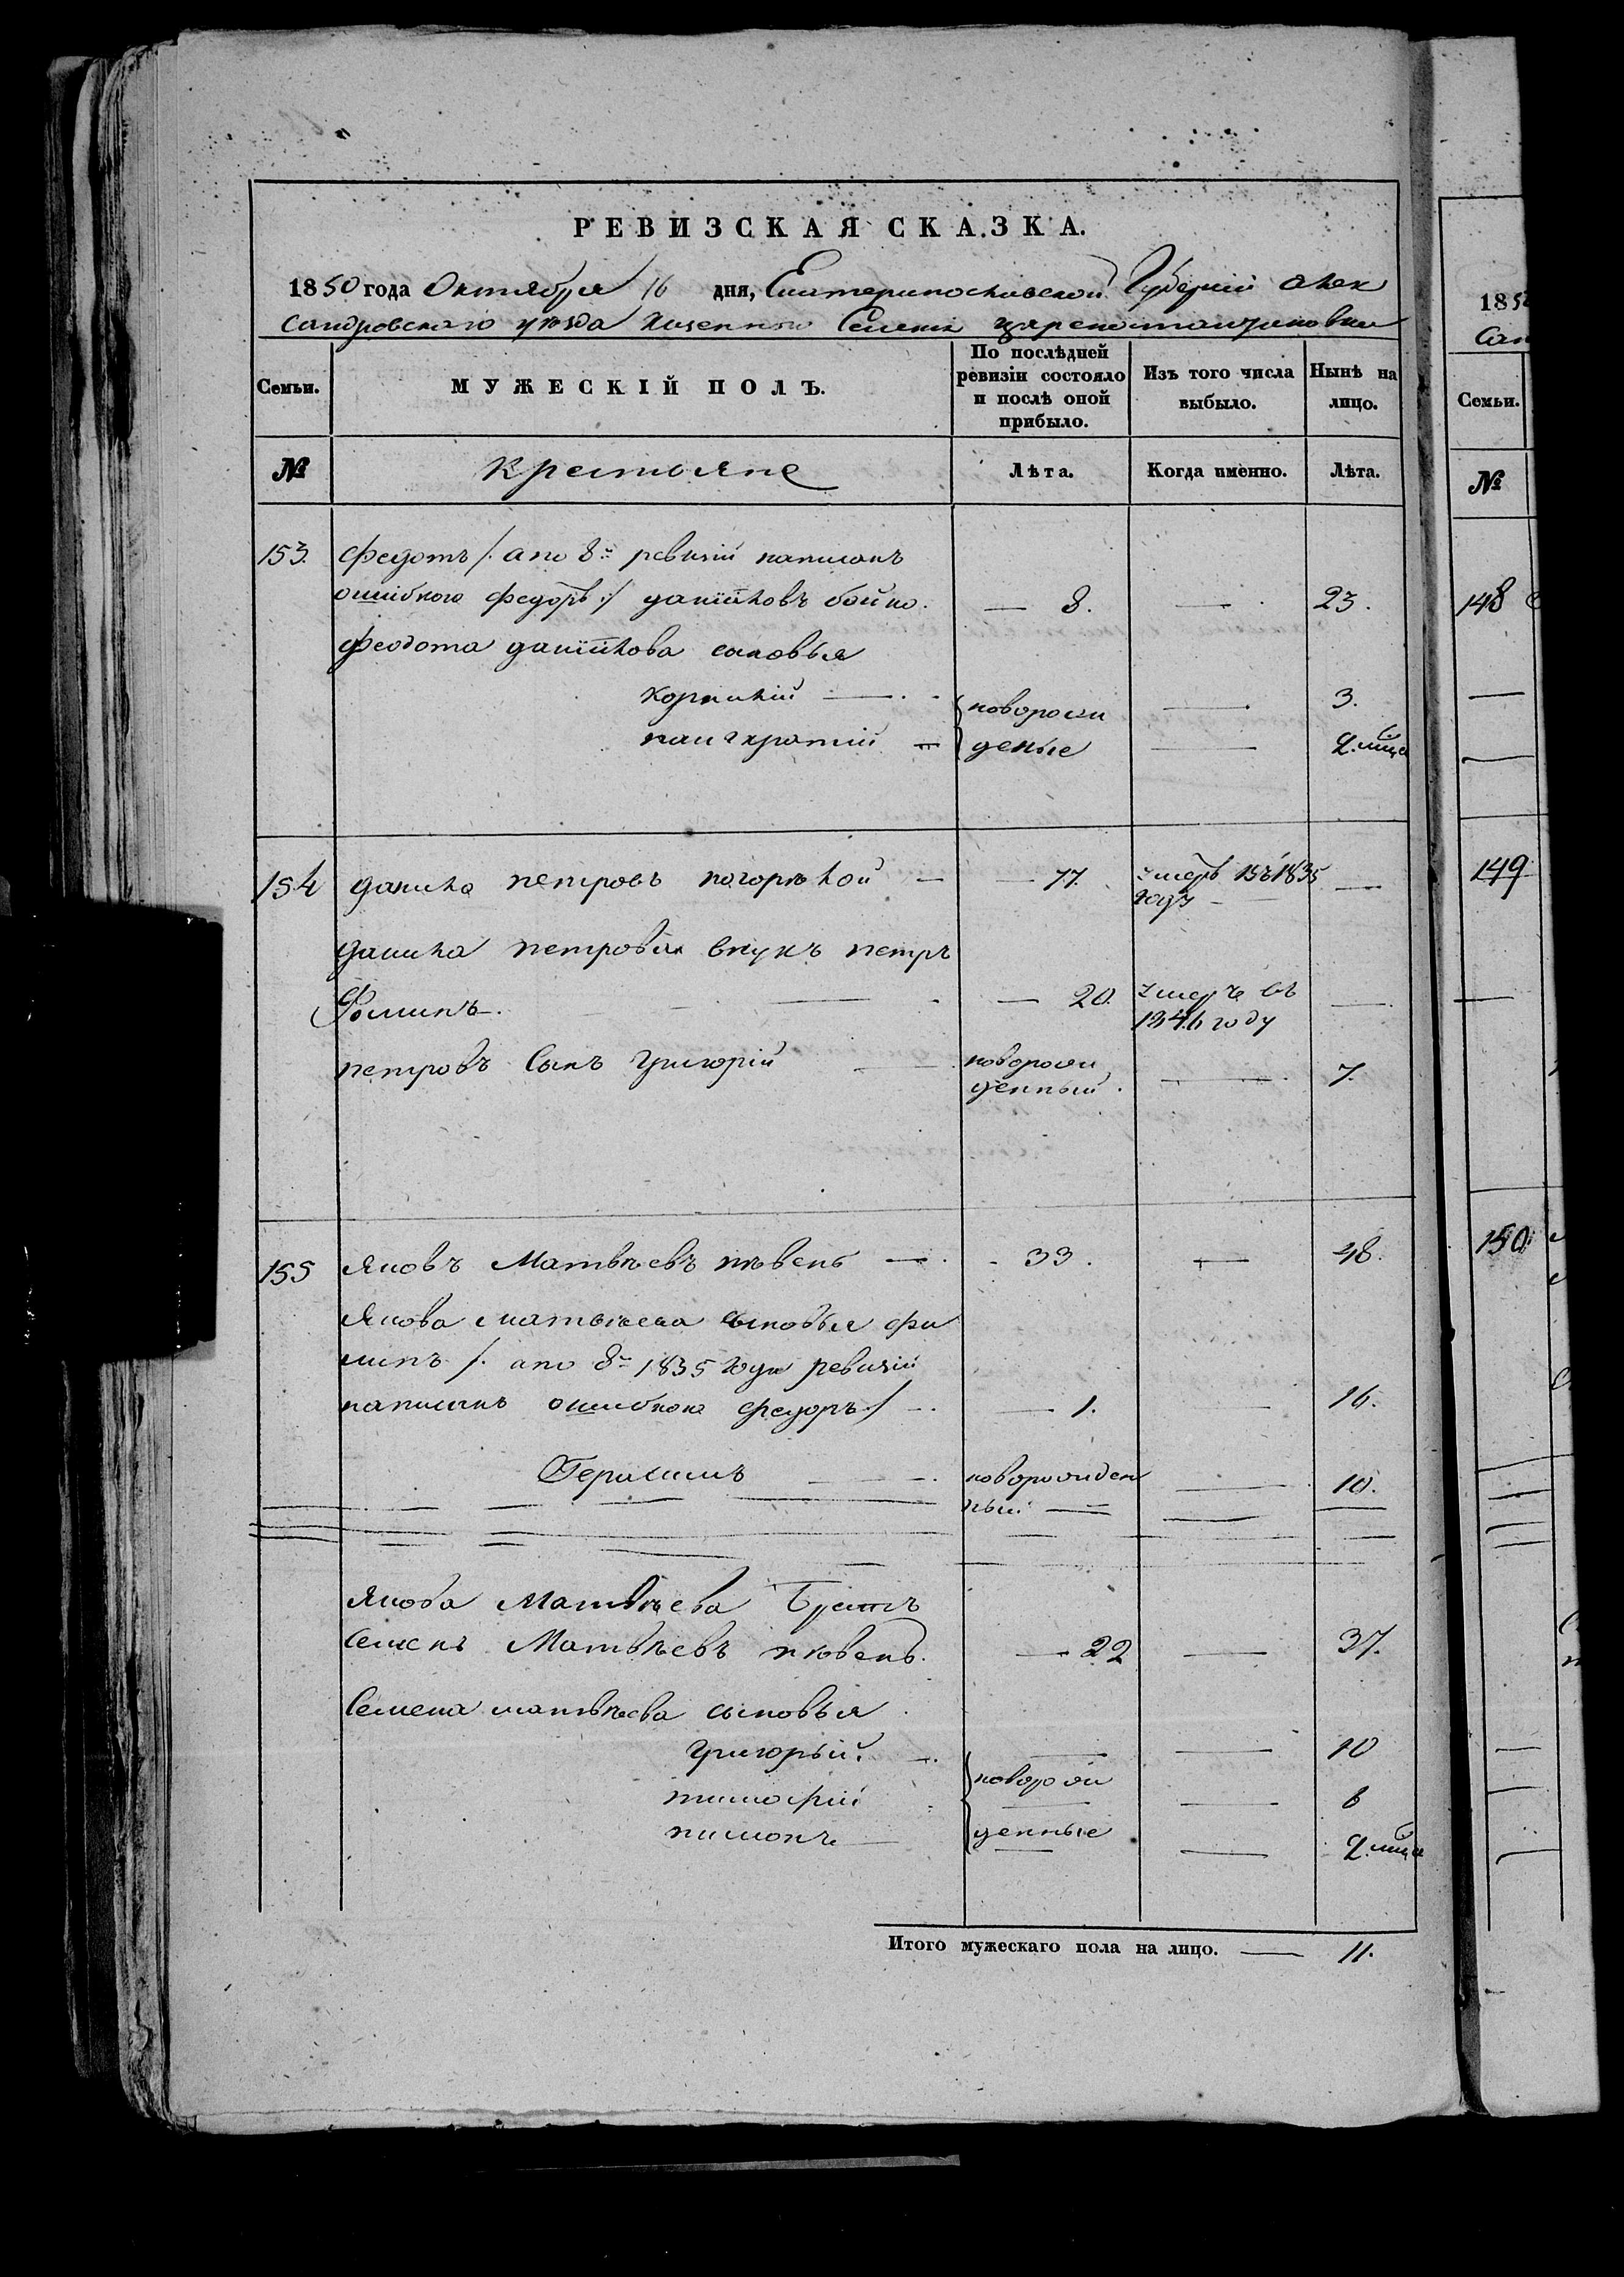 РЕВИЗСКАЯ СКАЗКА.
1850 года Октября 16 дня, Екатеринославской Губерніи Алек
сандровскаго уезда казенного Селенія Цареконстантиновки
Семьи.
МУЖЕСКІЙ ПОЛЪ.
По послѣдней ревизіи состояло и послѣ оной прибыло.
Изъ того числа выбыло.
Нынѣ на лицо.
№ Крестьяне Лѣта. Когда именно. Лѣта.
153. Федотъ /. а по 8й ревизіи написанъ
ошибкою Федоръ ./ Даниловъ бойко. — 8. — 23.
Феодота данилова сыновья
корнилій — новорож — 3.
панкратій — деные — 2. мца
154 данила петровъ погорѣлой — 77. умеръ въ 1835 —
году
данила петрова внукъ петръ
Фоминъ — 20. умеръ въ —
1846 году
петровъ Сынъ григорій новорож
денный — 7.
155 Яковъ Матвѣевъ пѣвень — 33. — 48.
Якова матвѣева сыновья фи
липъ /. а по 8й 1835 года ревизіи
написанъ ошибкою федоръ ./ — 1. — 16.
Герасимъ — новорожден — 10.
ный
Якова Матвѣева Братъ
Семенъ Матвѣевъ пѣвень. — 22 — 37.
Семена матвѣева сыновья
григорій. — 10
тимофій новорож — 6
пимонъ денные — 2. мца
Итого мужескаго пола на лицо. — 11.
185
Сан
Семьи.
№
148
149
150